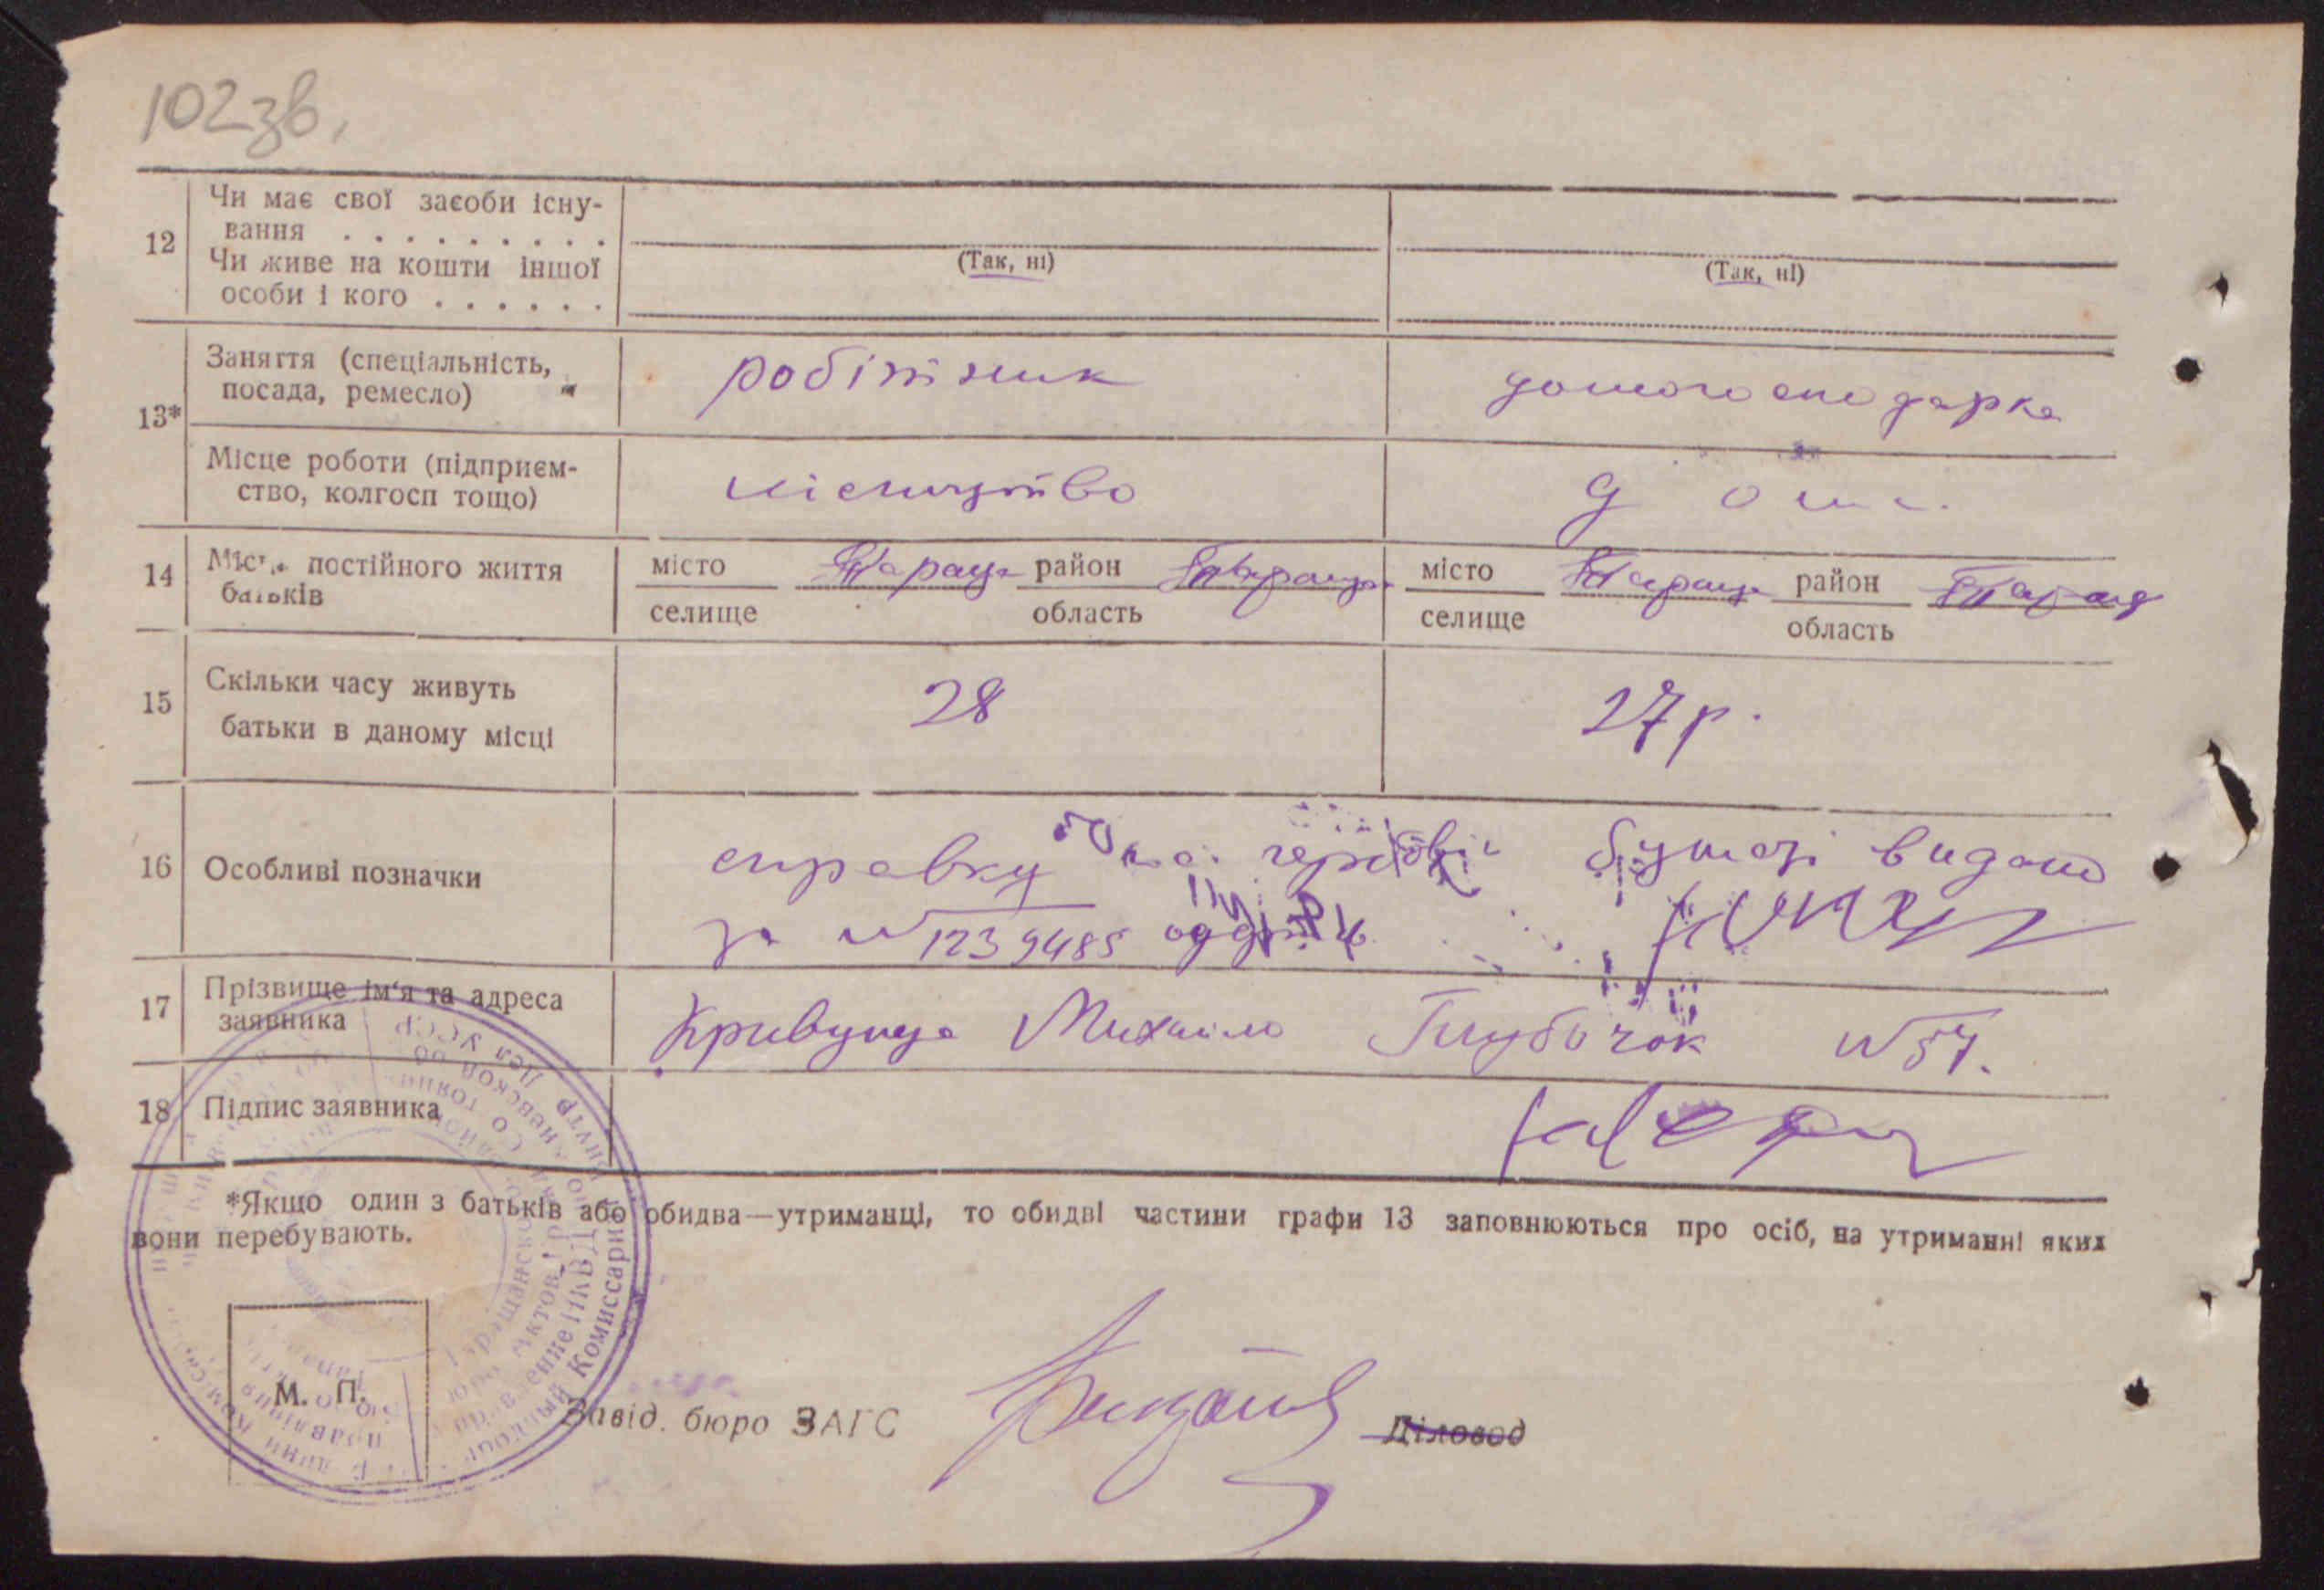 102зв.
12 Чи має свої засоби існу-
вання . . . . . . . . .
Чи живе на кошти іншої
особи і кого . . . . . .
(Так, ні) (Так, ні)
13* Заняття (спеціальність,
посада, ремесло) робітник домогосподарка
Місце роботи (підприєм-
ство, колгосп тощо) лісництво дом.
14 Місце постійного життя
батьків
місто Тараща район Тараща місто Тараща район Таращ
селище область селище область
15 Скільки часу живуть
батьки в даному місці 28 27 р.
16 Особливі позначки справку на гербовій бумазі видано
за № 1239485
17 Прізвище ім'я та адреса
заявника Кривунда Михайло Глубочок № 57.
18 Підпис заявника
*Якщо один з батьків або обидва—утриманці, то обидві частини графи 13 заповнюються про осіб, на утриманні яких
вони перебувають.
М. П.
Завід. бюро ЗАГС Діловод